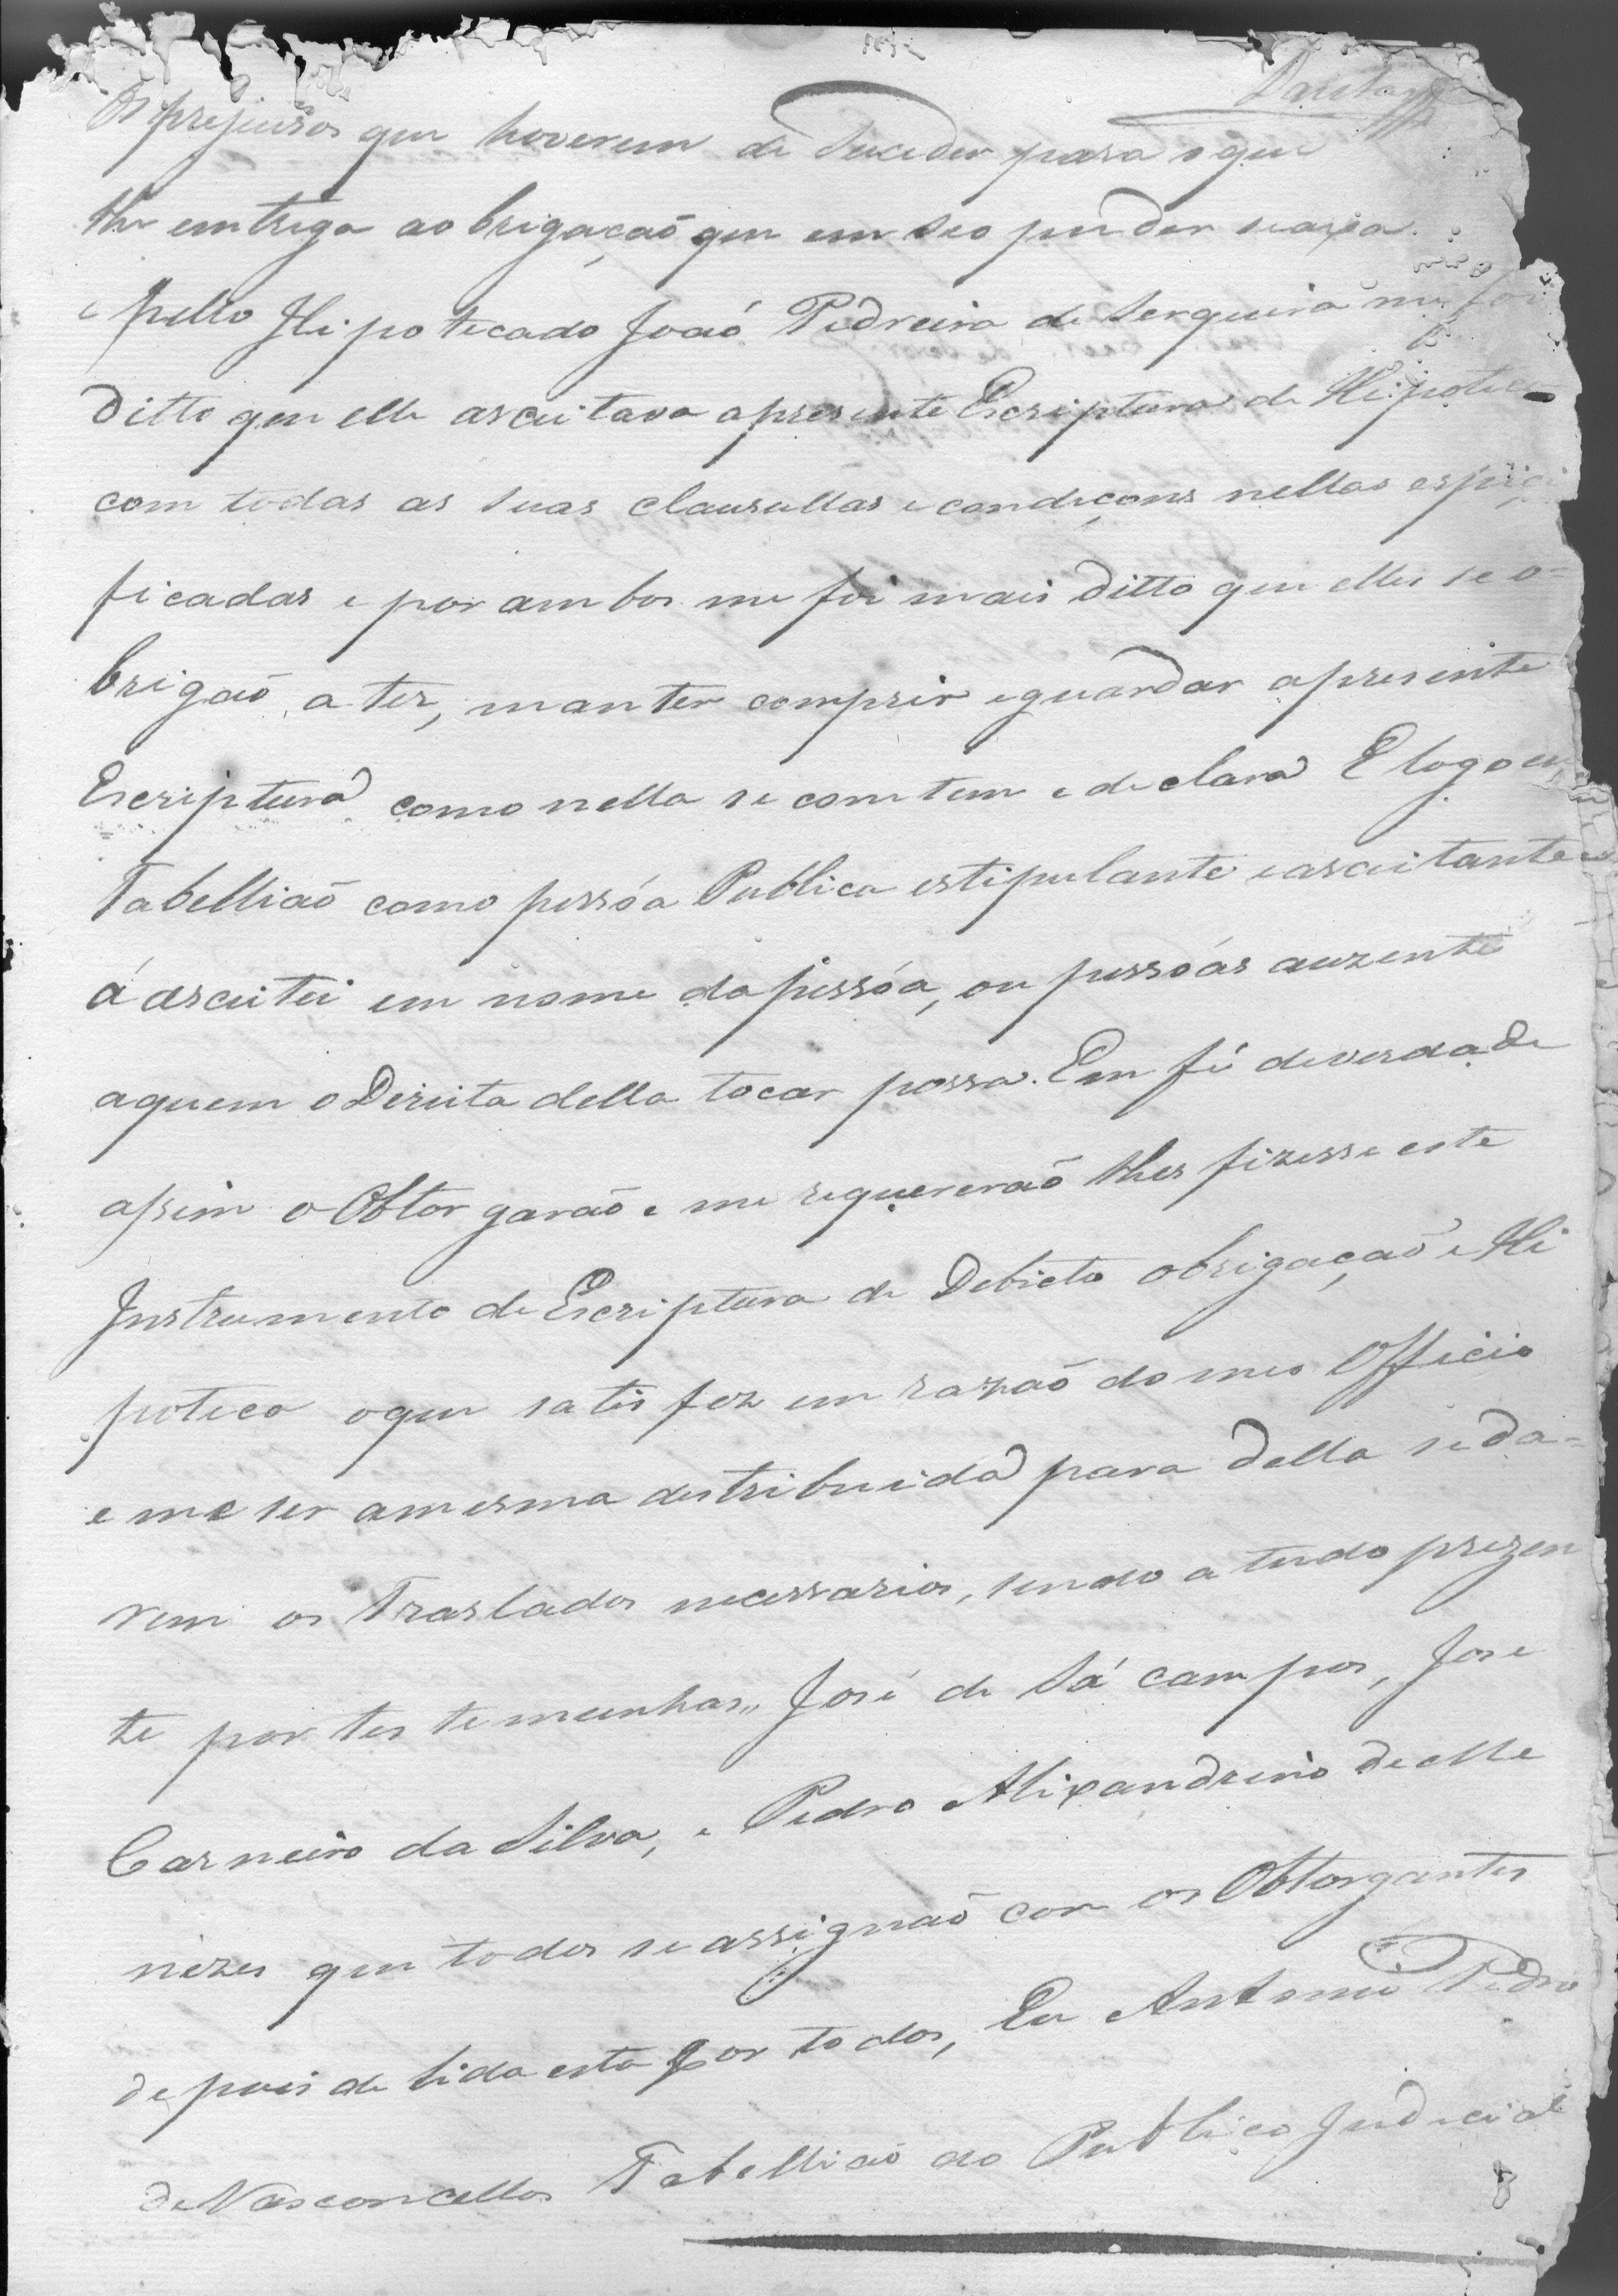 Os prejuisos que hoverem de suceder para o que
lhe emtrega ao brigaçaõ que em seo puder
e pello Hipotecado Joaõ Pedreira de Serqueira me foi
Ditto que elle asceitava apresente Escriptura de Hipoteca
com todas as suas clausullas e condiçons nellas espici
ficadas e por ambos me foi mais Ditto que elles se o-
brigaõ, a ter, manter comprir eguardar apresente
Escriptura como nella se comtem e declara E logo eu
Tabelliaõ como pessóa Publica estipulante easceitante
á asceitei em nome da pessóa, ou pessóas auzente
aquem o Dereita della tocar possa. Em fé deverdade
assim o Obtorgaraõ e me requereraõ lhes fizesse este
Instrumento de Escriptura de Debicto obrigaçaõ e Hi
poteca oque satisfez em razaõ do meo Officio
e me ser amesma destribuida para della se da=
rem os Traslados necessarios, sendo a tudo prezen
te por testemunhas,, José de Sá campos, Jose
Carneiro da Silva, e Pedro Alixandrino de Me
nezes que todos se assignaõ com os Obtorgantes
depois de lida esta por todos, Eu Antonio Pedro
de Vasconcellos Tabelliaõ do Publico Judicial